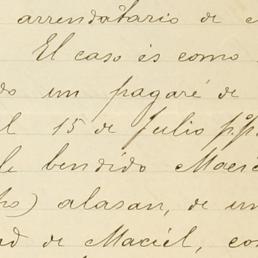 arrendatario de
El caso és como
un pagaré de
15 de Julio pp.
bendido Maci
alasan, de un
de Maciel, co